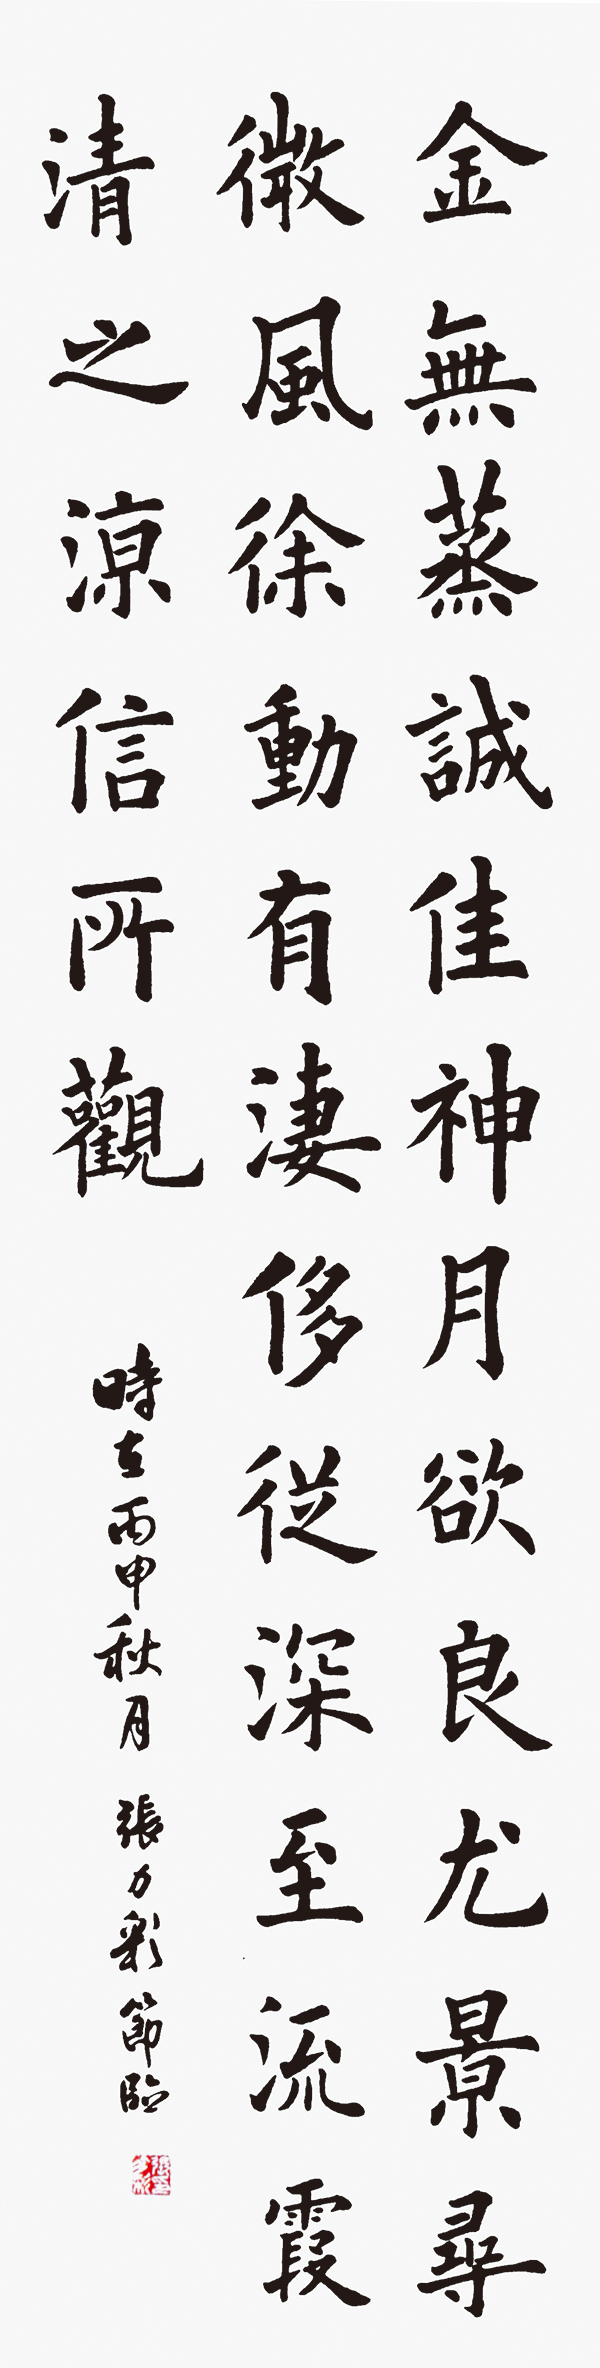 金無蒸誠佳神月欲良尤景尋
微風徐動有淒侈從深至流霞
清之涼信所觀
時在丙申秋月 張力彩節臨